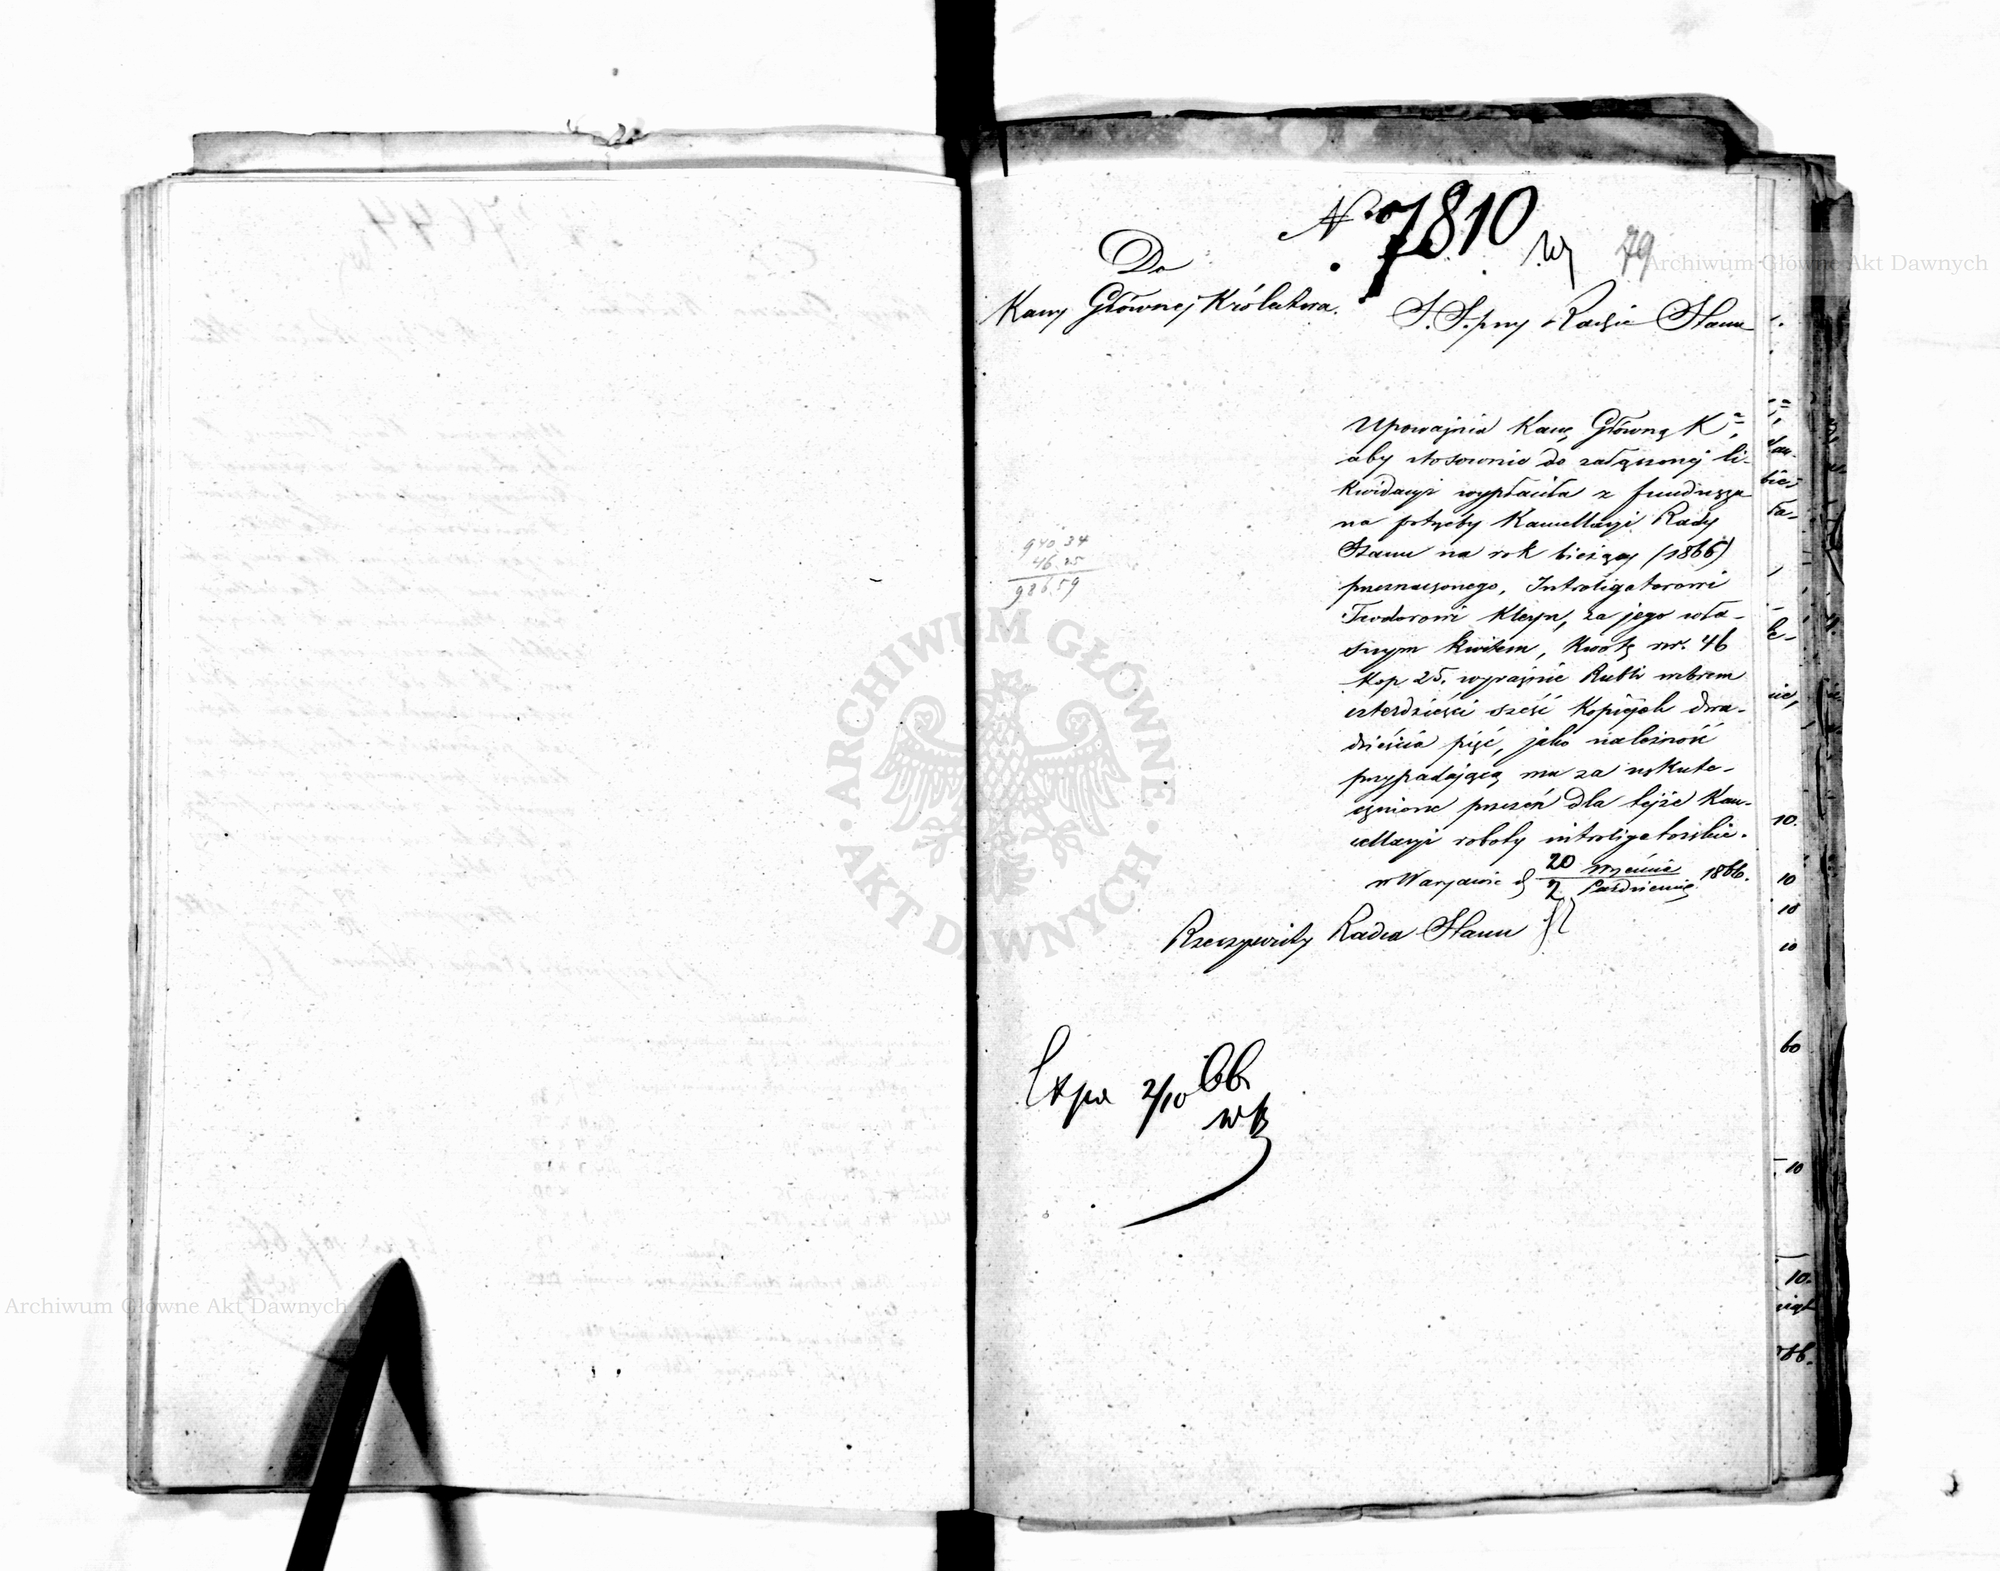 No 7810
79
Do
Kassy Głównej Królestwa.
S. S. przy Radzie Stanu
Upoważnia Kassę Główną K
aby stosownie do załączonej li-
kwidacyi wypłaciła z funduszu
na potrzeby Kancellaryi Rady
Stanu na rok bieżący (1866)
przeznaczonego, Introligatorowi
Teodorowi Kleyn, za jego wła-
snym kwitem, kwotę rsr. 46
kop 25. wyraźnie Rubli srebrem
czterdzieści sześć kopiejek dwa-
dzieścia pięć, jako należność
przypadającą mu za uskute-
cznione przezeń dla tejże Kan-
cellaryi roboty introligatorskie.
w Warszawie d 20 Września / 2 Października 1866.
Rzeczywisty Radca Stanu
940 34
46. 25
986.59
Exp 2/10 66
ARCHIWUM GŁÓWNE AKT DAWNYCH
Archiwum Główne Akt Dawnych
Archiwum Główne Akt Dawnych